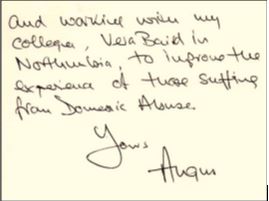 and working with my
colleague, Vera Baird in
Northumbria, to improve the
experience of those suffering
from Domestic Abuse.
Yours
Angus